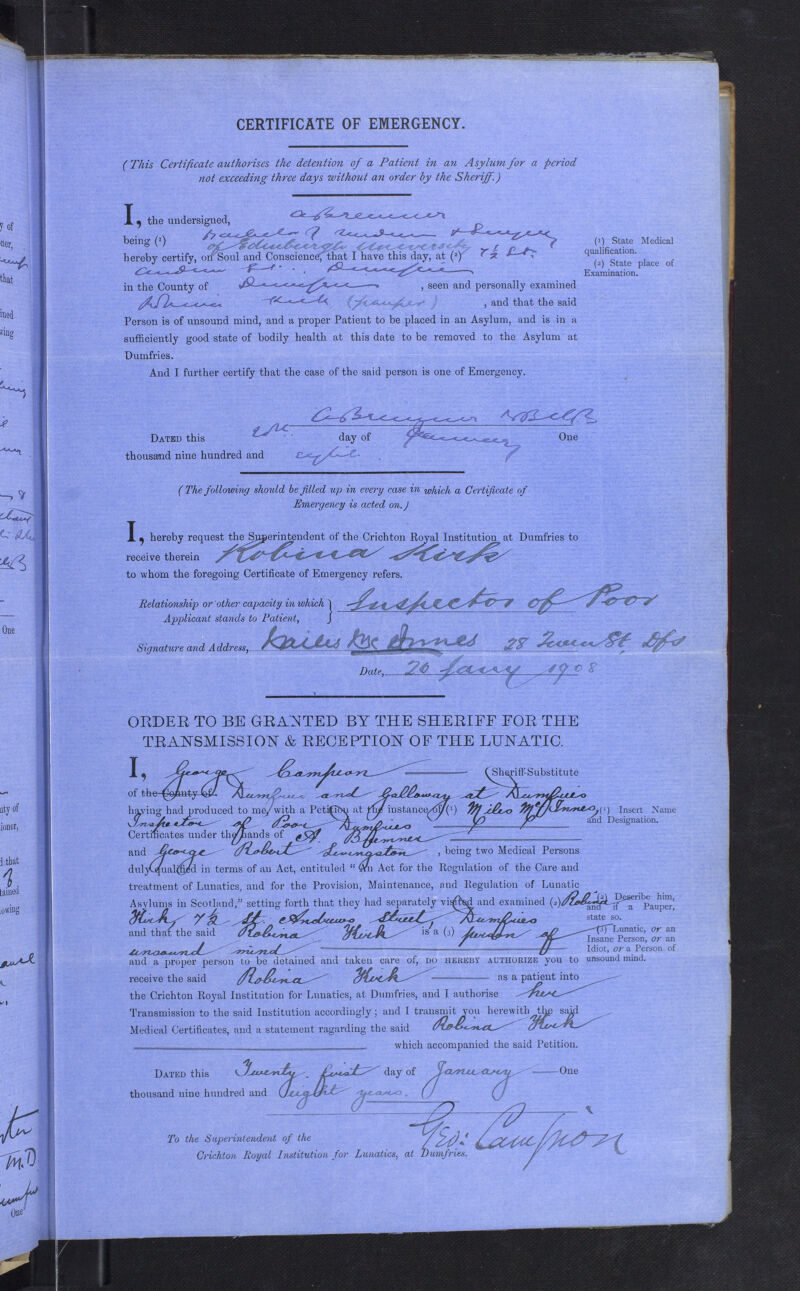 CERTIFICATE OF EMERGENCY.
(This Certificate authorises the detention of a Patient in an Asylum for a period
not exceeding three days without an order by the Sheriff.)
I, the undersigned, A Bremner
being (1) Bachelor of Medicine & Surgery
of Edinburgh University
hereby certify, on Soul and Conscience, that I have this day, at (2) 7½ St.
Andrew St. Dumfries
in the County of Dumfries, seen and personally examined
Robina Kirk (pauper), and that the said
Person is of unsound mind, and a proper Patient to be placed in an Asylum, and is in a
sufficiently good state of bodily health at this date to be removed to the Asylum at
Dumfries.
And I further certify that the case of the said person is one of Emergency.
(1) State Medical
qualification.
(2) State place of
Examination.
A Bremner MBChB
DATED this day of January One
thousand nine hundred and eight.
(The following should be filled up in every case in which a Certificate of
Emergency is acted on.)
I, hereby request the Superintendent of the Crichton Royal Institution at Dumfries to
receive therein Robina Kirk
to whom the foregoing Certificate of Emergency refers.
Relationship or other capacity in which } Inspector of Poor
Applicant stands to Patient,
Signature and Address, Miles McInnes 28 St, Dfs
Date, 20 Jany 1908
ORDER TO BE GRANTED BY THE SHERIFF FOR THE
TRANSMISSION & RECEPTION OF THE LUNATIC.
I, George Campion (Sheriff-Substitute
of the County of Dumfries and Galloway at Dumfries
having had produced to me, with a Petition at the instance of (1) Miles McInnes,
Inspector of Poor Dumfries
Certificates under the hands of A. Bremner
and George Robert Livingston, being two Medical Persons
duly qualified in terms of an Act, entituled "An Act for the Regulation of the Care and
treatment of Lunatics, and for the Provision, Maintenance, and Regulation of Lunatic
Asylums in Scotland," setting forth that they had separately visited and examined (2) Robina
Kirk, 7½ St. Andrews Street, Dumfries
and that the said Robina Kirk is a (3) person of
unsound mind
and a proper person to be detained and taken care of, DO HEREBY AUTHORIZE YOU to
receive the said Robina Kirk as a patient into
the Crichton Royal Institution for Lunatics, at Dumfries, and I authorise her
Transmission to the said Institution accordingly; and I transmit you herewith the said
Medical Certificates, and a statement ragarding the said Robina Kirk
which accompanied the said Petition.
(1) Insert Name
and Designation.
(2) Describe him,
and if a Pauper,
state so.
(3) Lunatic, or an
Insane Person, or an
Idiot, or a Person of
unsound mind.
DATED this Twenty first day of January One
thousand nine hundred and eight years.
Geo: Campion
To the Superintendent of the
Crichton Royal Institution for Lunatics, at Dumfries.